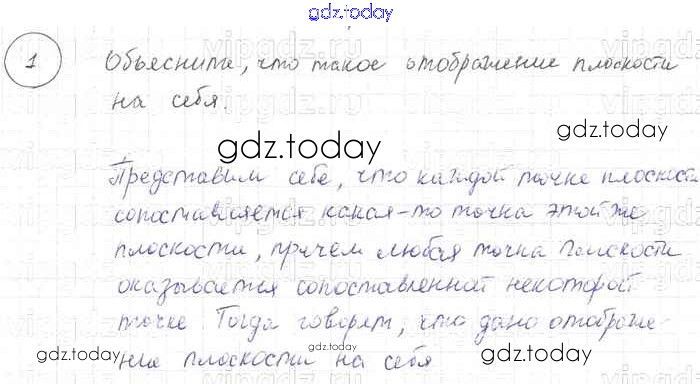 gdz.today
1 Объясните, что такое отображение плоскости
на себя.
gdz.today
gdz.today
Представим себе, что каждой точке плоскост
сопоставляется какая-то точка этой же
плоскости, причем любая точка плоскости
оказывается сопоставленной некоторой
точке. Тогда говорят, что дано отображе-
ние плоскости на себя
gdz.today
gdz.today